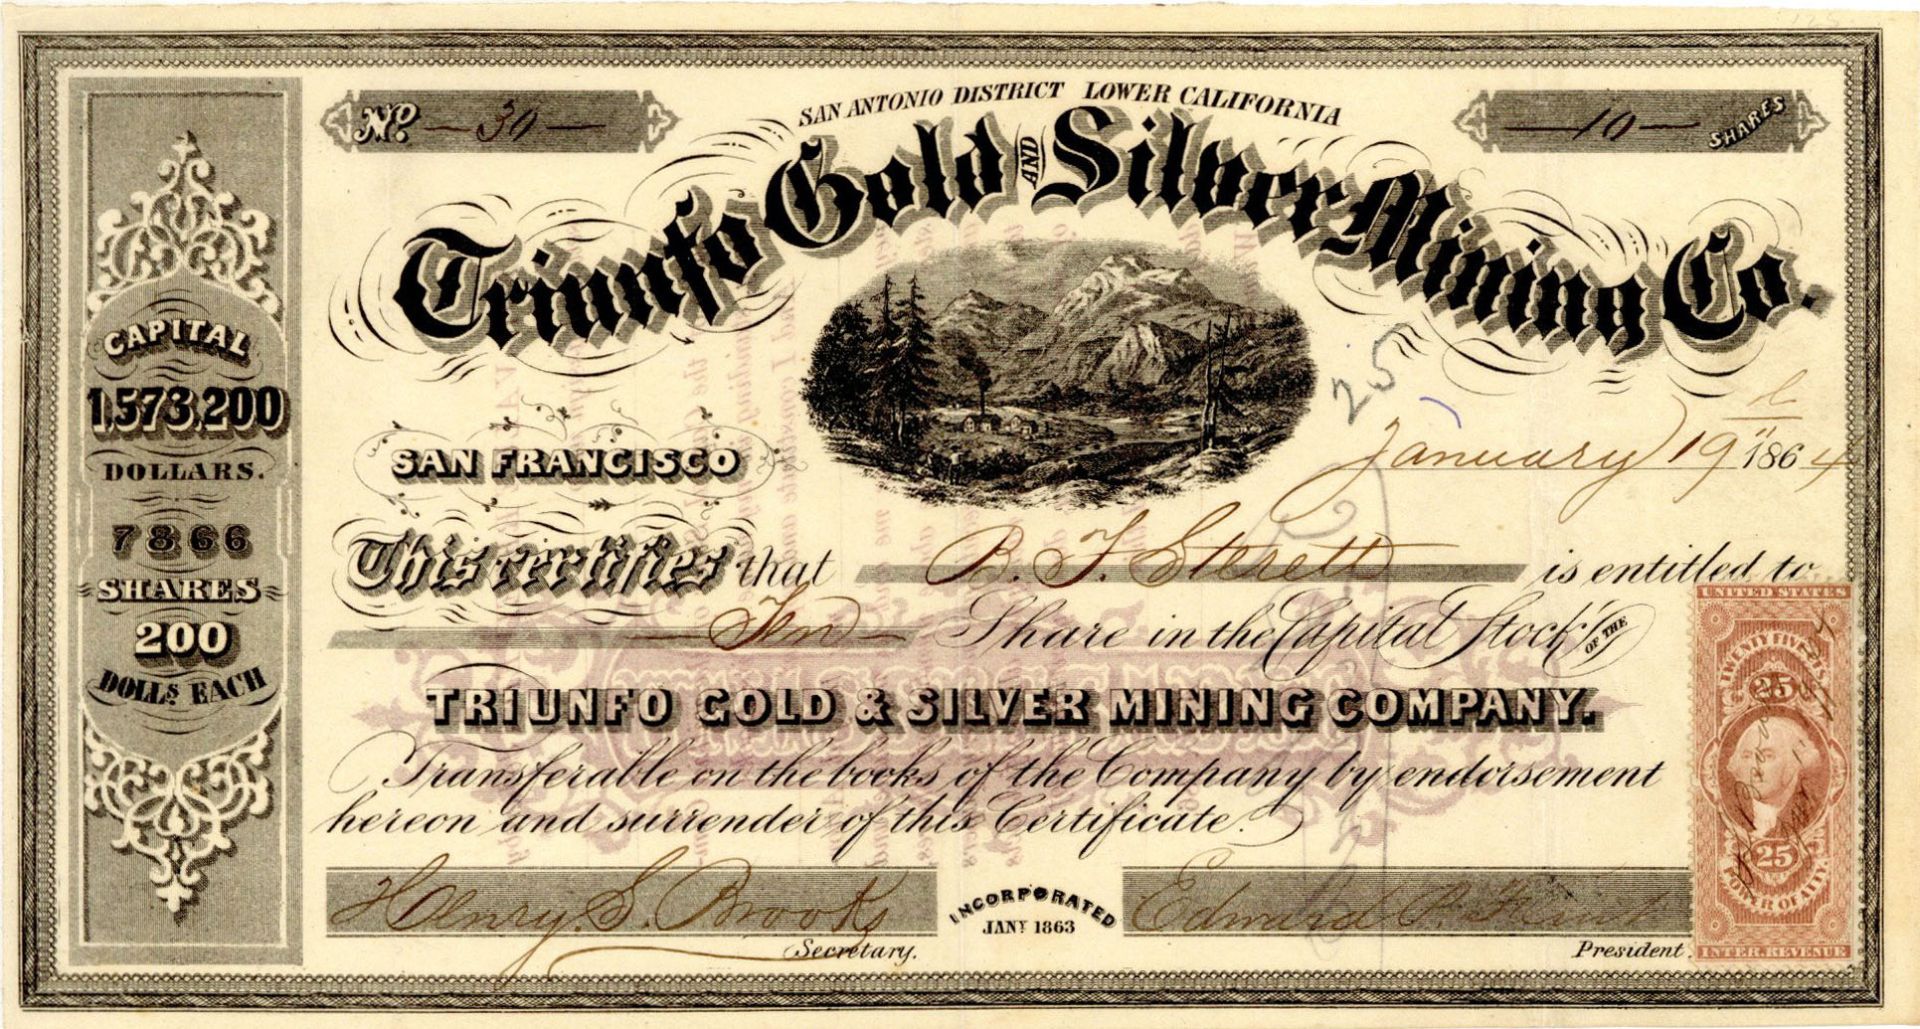 No. — 30 —
SAN ANTONIO DISTRICT LOWER CALIFORNIA
— 10 — SHARES
Triunfo Gold AND Silver Mining Co.
CAPITAL
1,573,200
DOLLARS.
7866
SHARES
200
DOLLS. EACH
25
SAN FRANCISCO
January 19" 1864
This certifies that B. F. Sterett is entitled to
— Ten — Share in the Capital Stock OF THE
TRIUNFO GOLD & SILVER MINING COMPANY.
Transferable on the books of the Company by endorsement
hereon and surrender of this Certificate.
Henry S. Brooks
Secretary.
INCORPORATED
JANY. 1863
Edward P. Flint
President.
UNITED STATES
TWENTY FIVE CTS.
25
25
POWER OF ATTY.
INTER. REVENUE